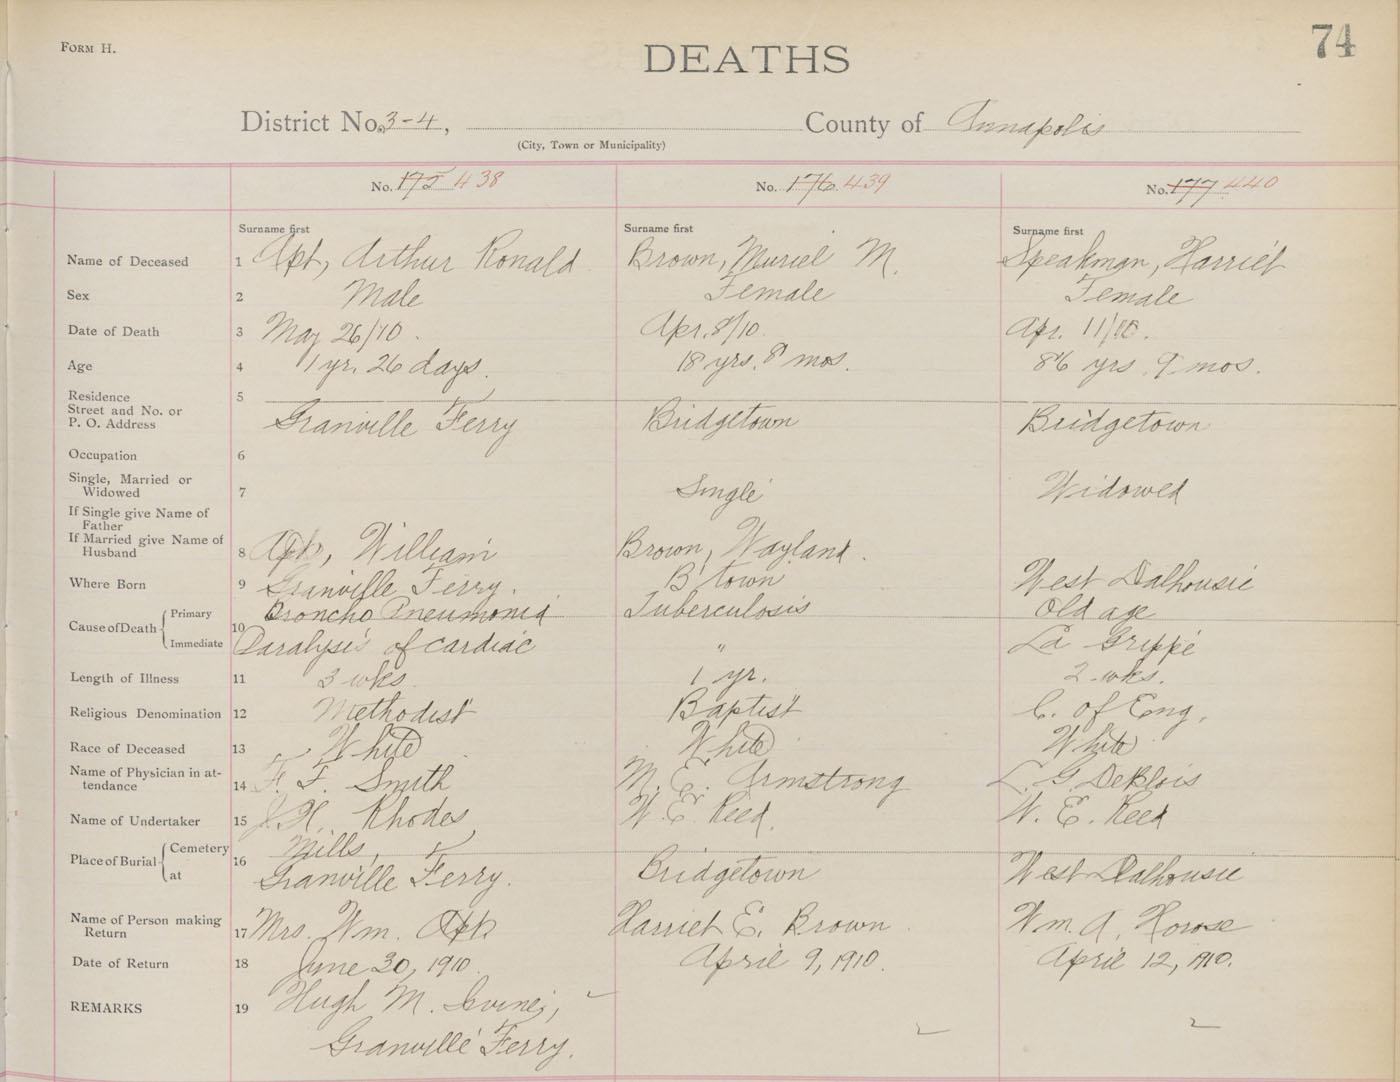 FORM H.
74
DEATHS
District No. 3-4, County of Annapolis
(City, Town or Municipality)
No. 175 438 No. 176 439 No. 177 440
Surname first Surname first Surname first
Name of Deceased 1 Apt, Arthur Ronald Brown, Muriel M. Speakman, Harriet
Sex 2 Male Female Female
Date of Death 3 May 26/10. Apr. 8/10. Apr. 11/10.
Age 4 1 yr. 26 days. 18 yrs. 8 mos. 86 yrs. 9 mos.
Residence 5
Street and No. or
P. O. Address Granville Ferry Bridgetown Bridgetown
Occupation 6
Single, Married or
Widowed 7 Single Widowed
If Single give Name of
Father
If Married give Name of
Husband 8 Apt, William Brown, Wayland.
Where Born 9 Granville Ferry. B'town West Dalhousie
Cause of Death Primary 10 Broncho Pneumonia Tuberculosis Old age
Immediate Paralysis of cardiac " La Grippe
Length of Illness 11 3 wks. 1 yr. 2 wks.
Religious Denomination 12 Methodist Baptist C. of Eng.
Race of Deceased 13 White White White
Name of Physician in at-
tendance 14 F. F. Smith M. E. Armstrong L. G. DeBlois
Name of Undertaker 15 J. H. Rhodes W. E. Reed. W. E. Reed
Place of Burial Cemetery 16 Mills,
at Granville Ferry. Bridgetown West Dalhousie
Name of Person making
Return 17 Mrs. Wm. Apt Harriet E. Brown Wm. A.
Date of Return 18 June 30, 1910. April 9, 1910. April 12, 1910.
REMARKS 19 Hugh M. Irvine,
Granville Ferry.